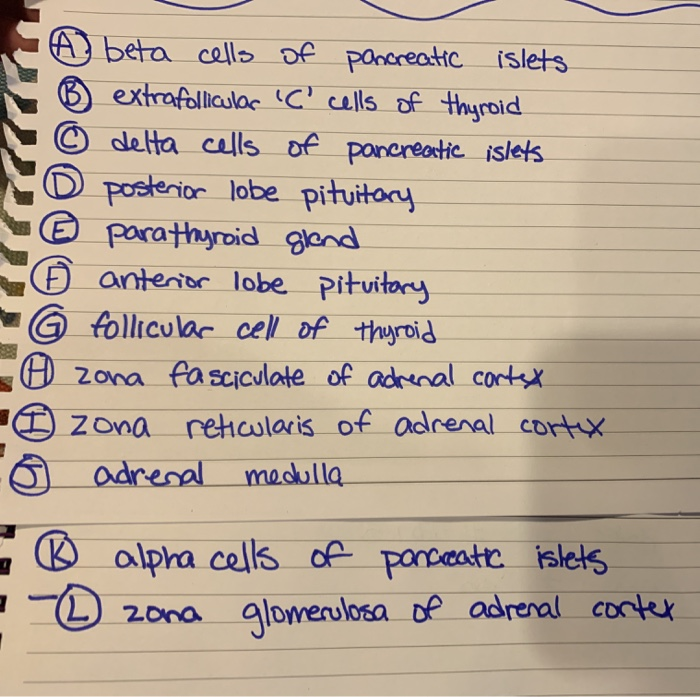 A beta cells of pancreatic islets
B extrafollicular 'C' cells of thyroid
C delta cells of pancreatic islets
D posterior lobe pituitary
E parathyroid gland
F anterior lobe pituitary
G follicular cell of thyroid
H zona fasciculate of adrenal cortex
I zona reticularis of adrenal cortex
J adrenal medulla
K alpha cells of pancreatic islets
-L zona glomerulosa of adrenal cortex